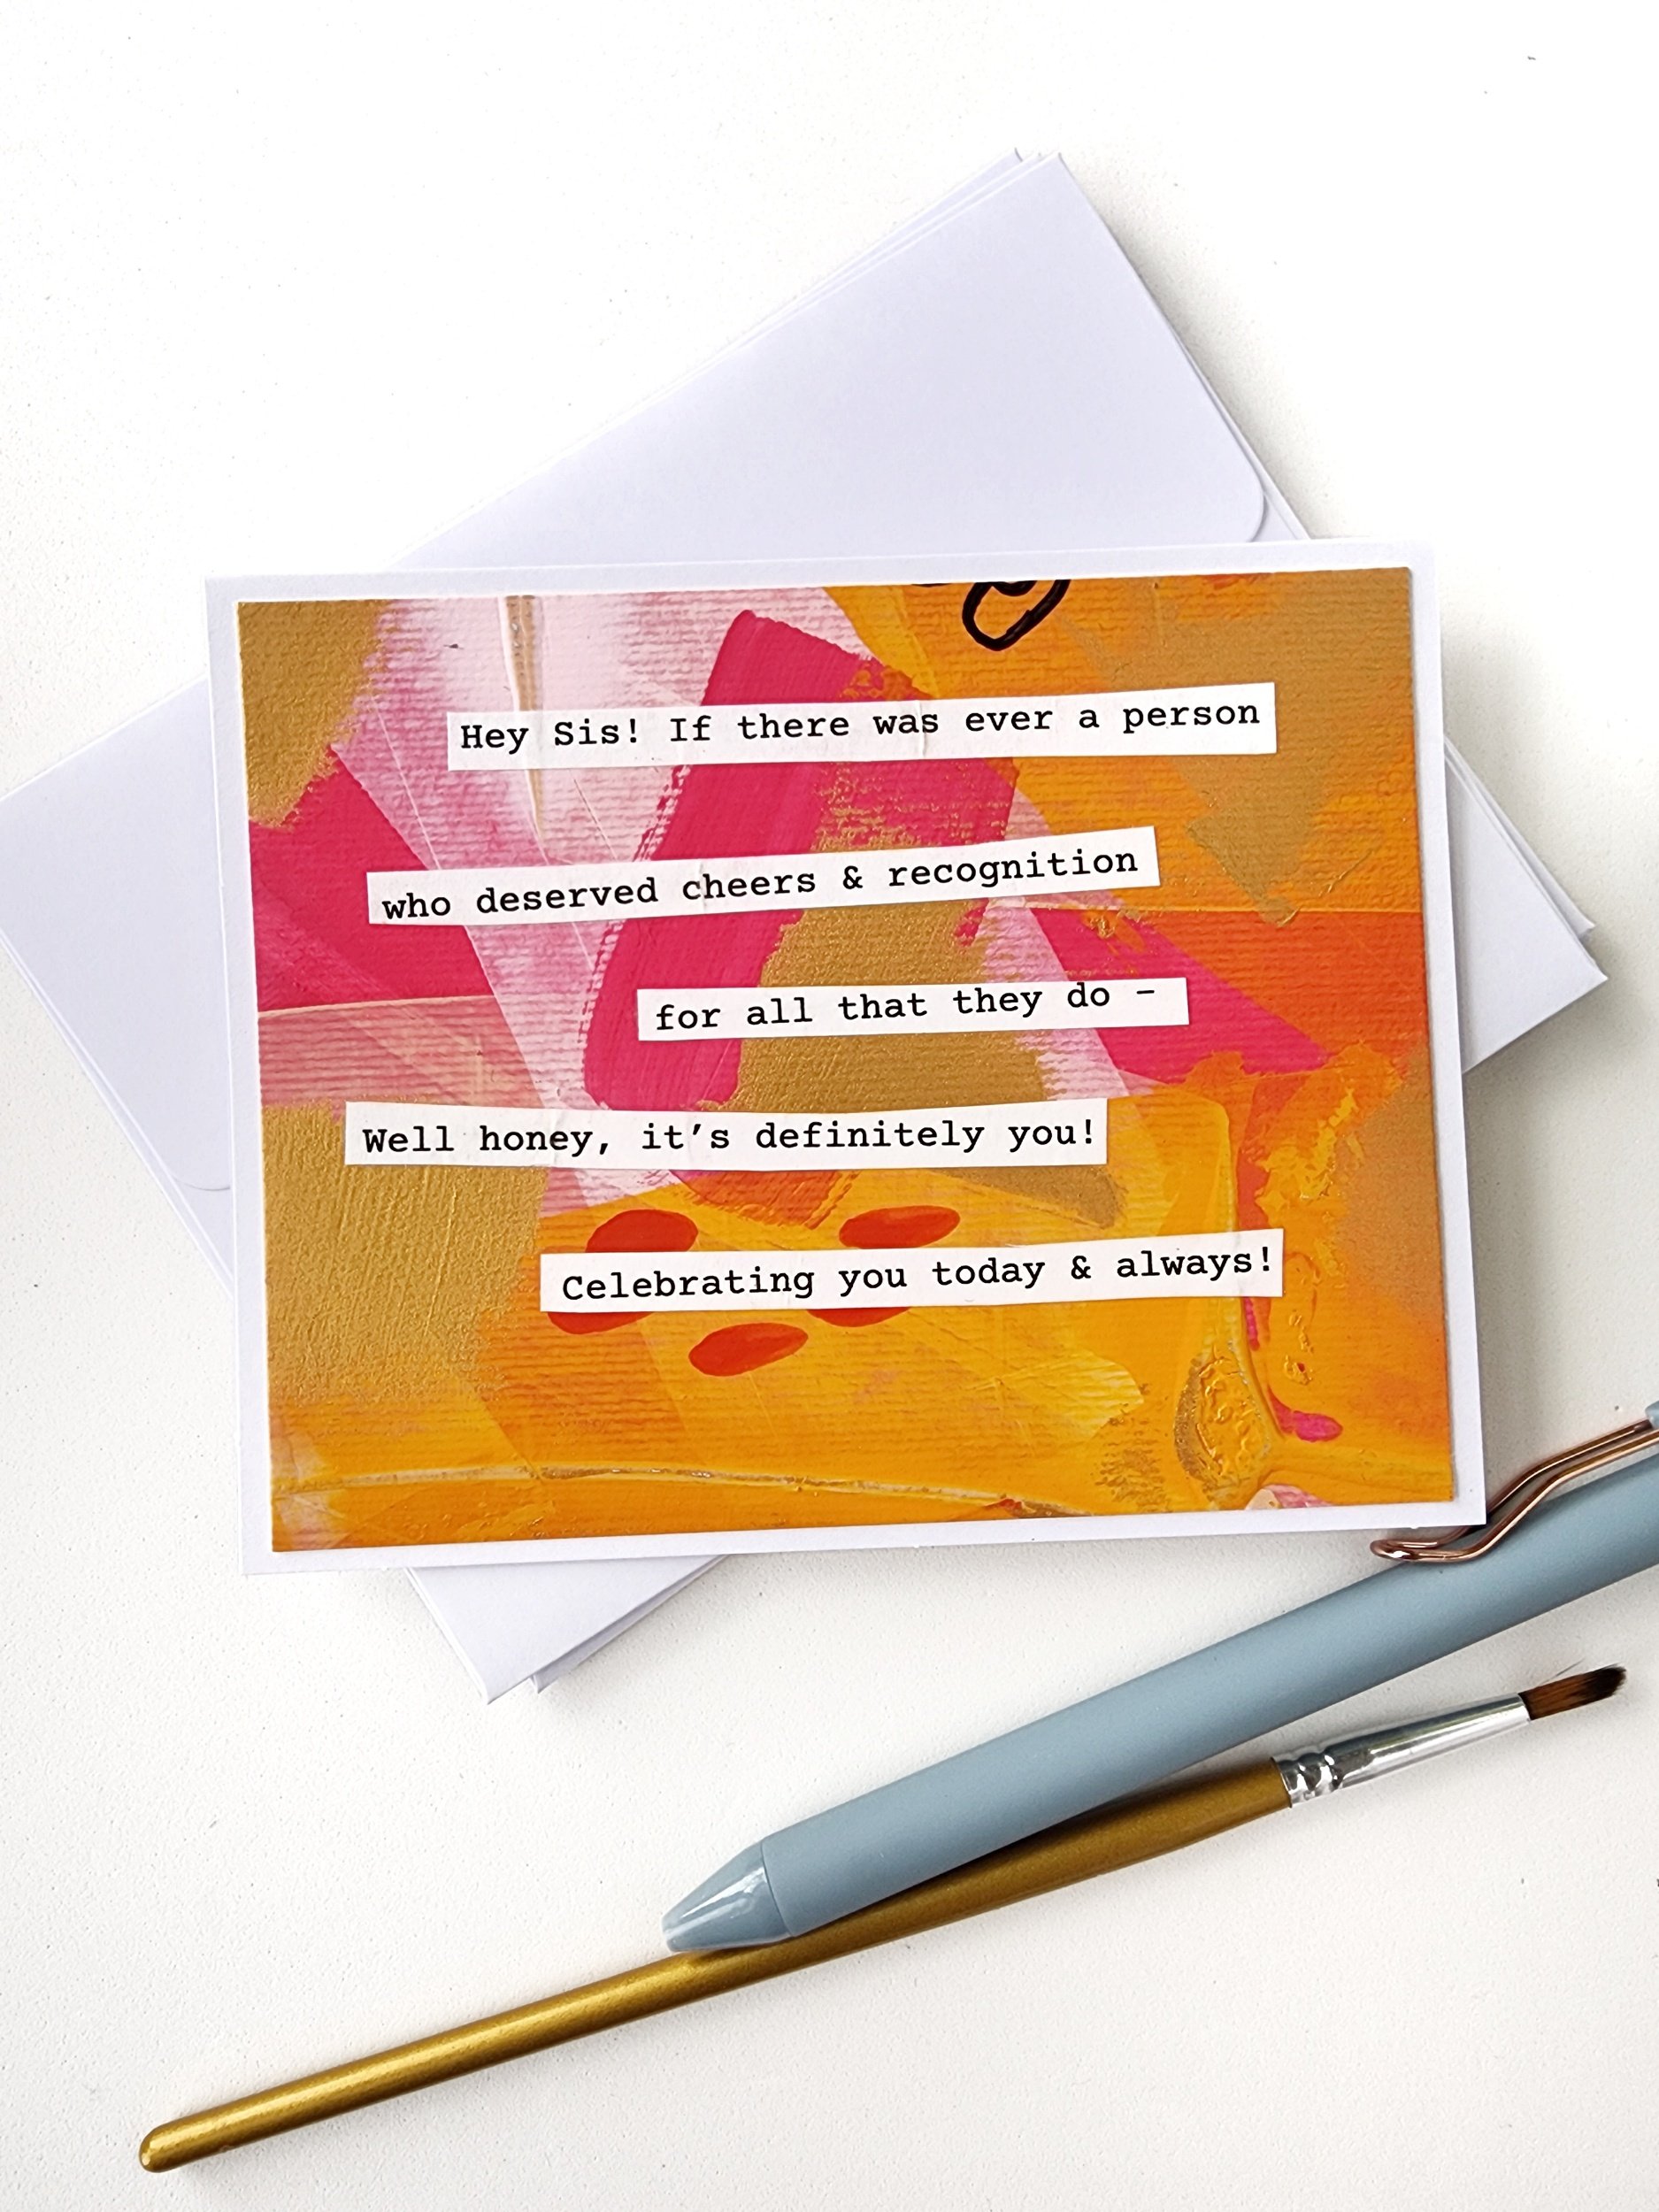 Hey Sis! If there was ever a person
who deserved cheers & recognition
for all that they do –
Well honey, it’s definitely you!
Celebrating you today & always!